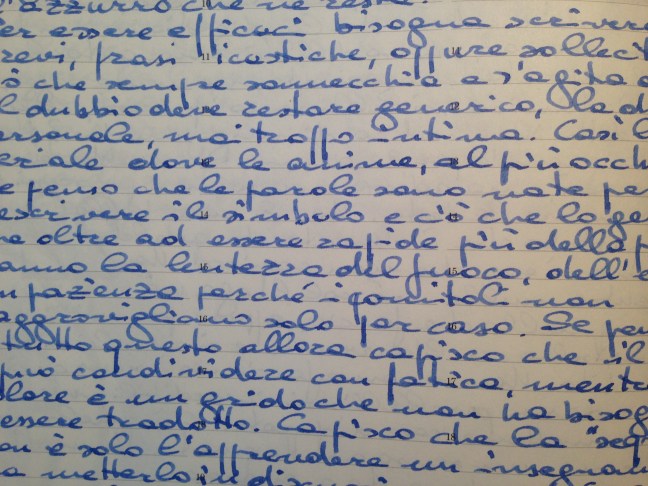 azzurro che ne resta.
er essere efficaci bisogna scrivere
revi, frasi icastiche, oppure sollecit
ò che sempre sonnecchia e s'agita
l dubbio deve restare generico, la d
ersonale, mai troppo intima. Così l
eriale dove le anime, al più occh
e penso che le parole sono nate per
escrivere il simbolo e ciò che lo ge
a oltre ad essere rapide più della
anno la lentezza del fuoco, dell'e
mpazienza perché i gomitoli non
aggrovigliano solo per caso. Se pen
tutto questo allora capisco che il
può condividere con fatica, mentr
olore è un grido che non ha bisog
essere tradotto. Capisco che la "seg
on è solo l'apprendere un insegnam
a metterlo in